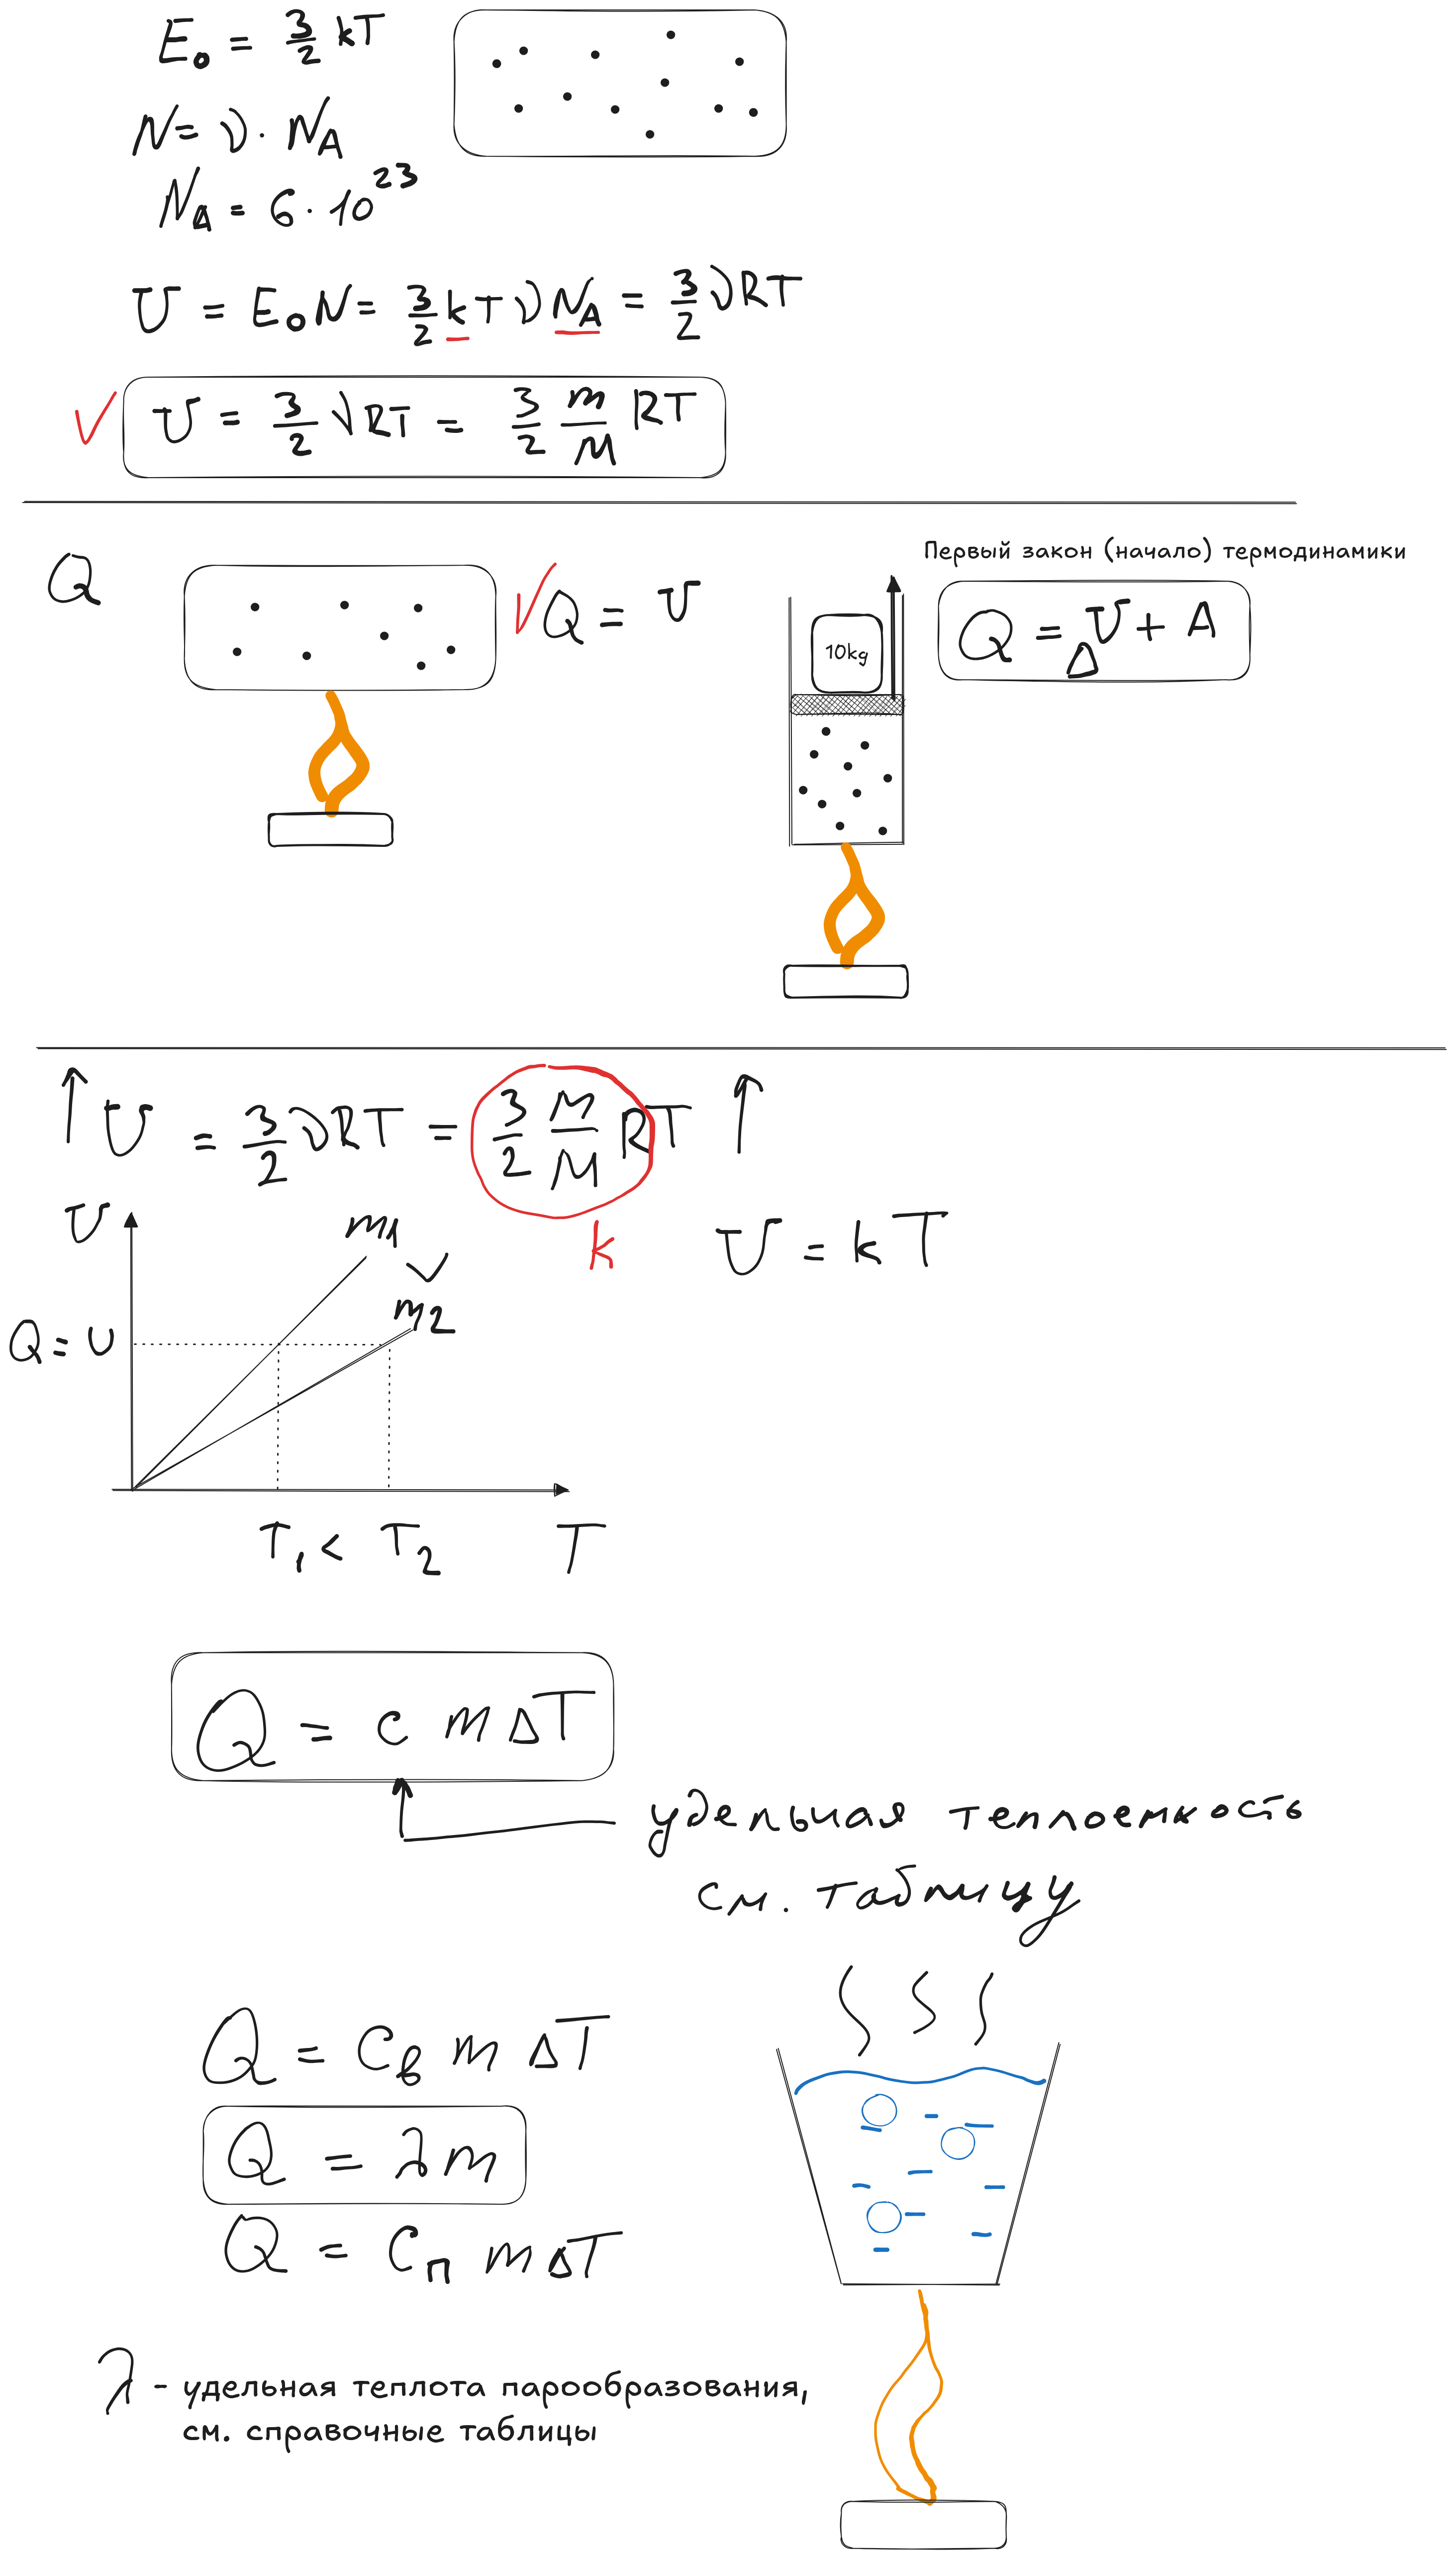 E₀ = 3/2 kT
N = ν · N_A
N_A = 6 · 10²³
U = E₀N = 3/2 kTνN_A = 3/2 νRT
U = 3/2 νRT = 3/2 m/M RT
Q
Q = U
Первый закон (начало) термодинамики
10kg
Q = ΔU + A
U = 3/2 νRT = 3/2 M/M RT
k
U = kT
U
m1
m2
Q = U
T₁ < T₂
T
Q = c m ΔT
удельная теплоемкость
см. таблицу
Q = Cв m ΔT
Q = λm
Q = Cп m ΔT
λ - удельная теплота парообразования,
см. справочные таблицы